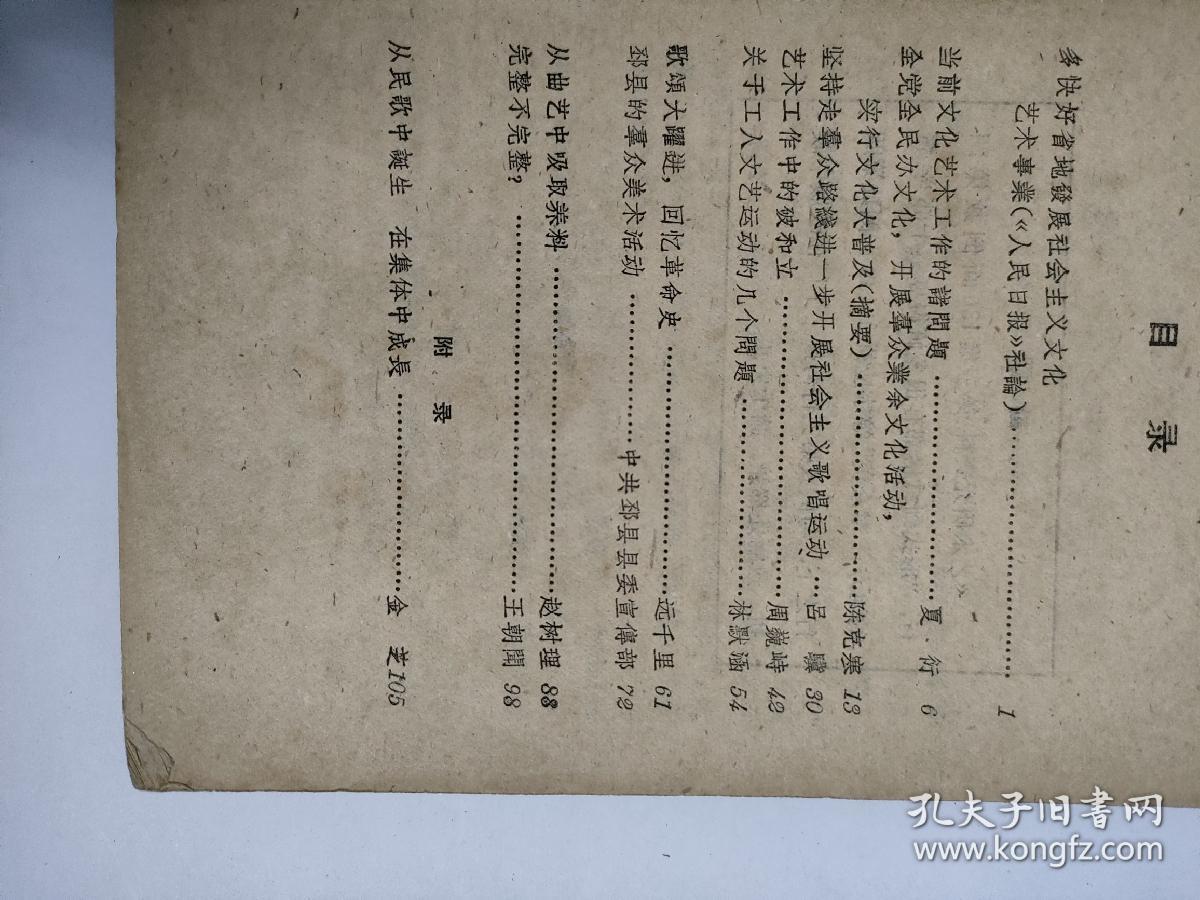 目录
多快好省地發展社会主义文化
艺术事業(《人民日报》社論)…………………1
当前文化艺术工作的諸問題…………………夏 衍 6
全党全民办文化，开展羣众業余文化活动，
实行文化大普及(摘要)…………………陈克寒 13
坚持走羣众路綫进一步开展社会主义歌唱运动…吕 驥 30
艺术工作中的破和立…………………周巍峙 42
关于工人文艺运动的几个問題…………………林默涵 54
歌頌大躍进，回忆革命史…………………远千里 61
邳县的羣众美术活动……………中共邳县县委宣傳部 72
从曲艺中吸取养料…………………赵树理 88
完整不完整?…………………王朝聞 98
附录
从民歌中誕生 在集体中成長…………………金 芝 105
孔夫子旧书网
www.kongfz.com